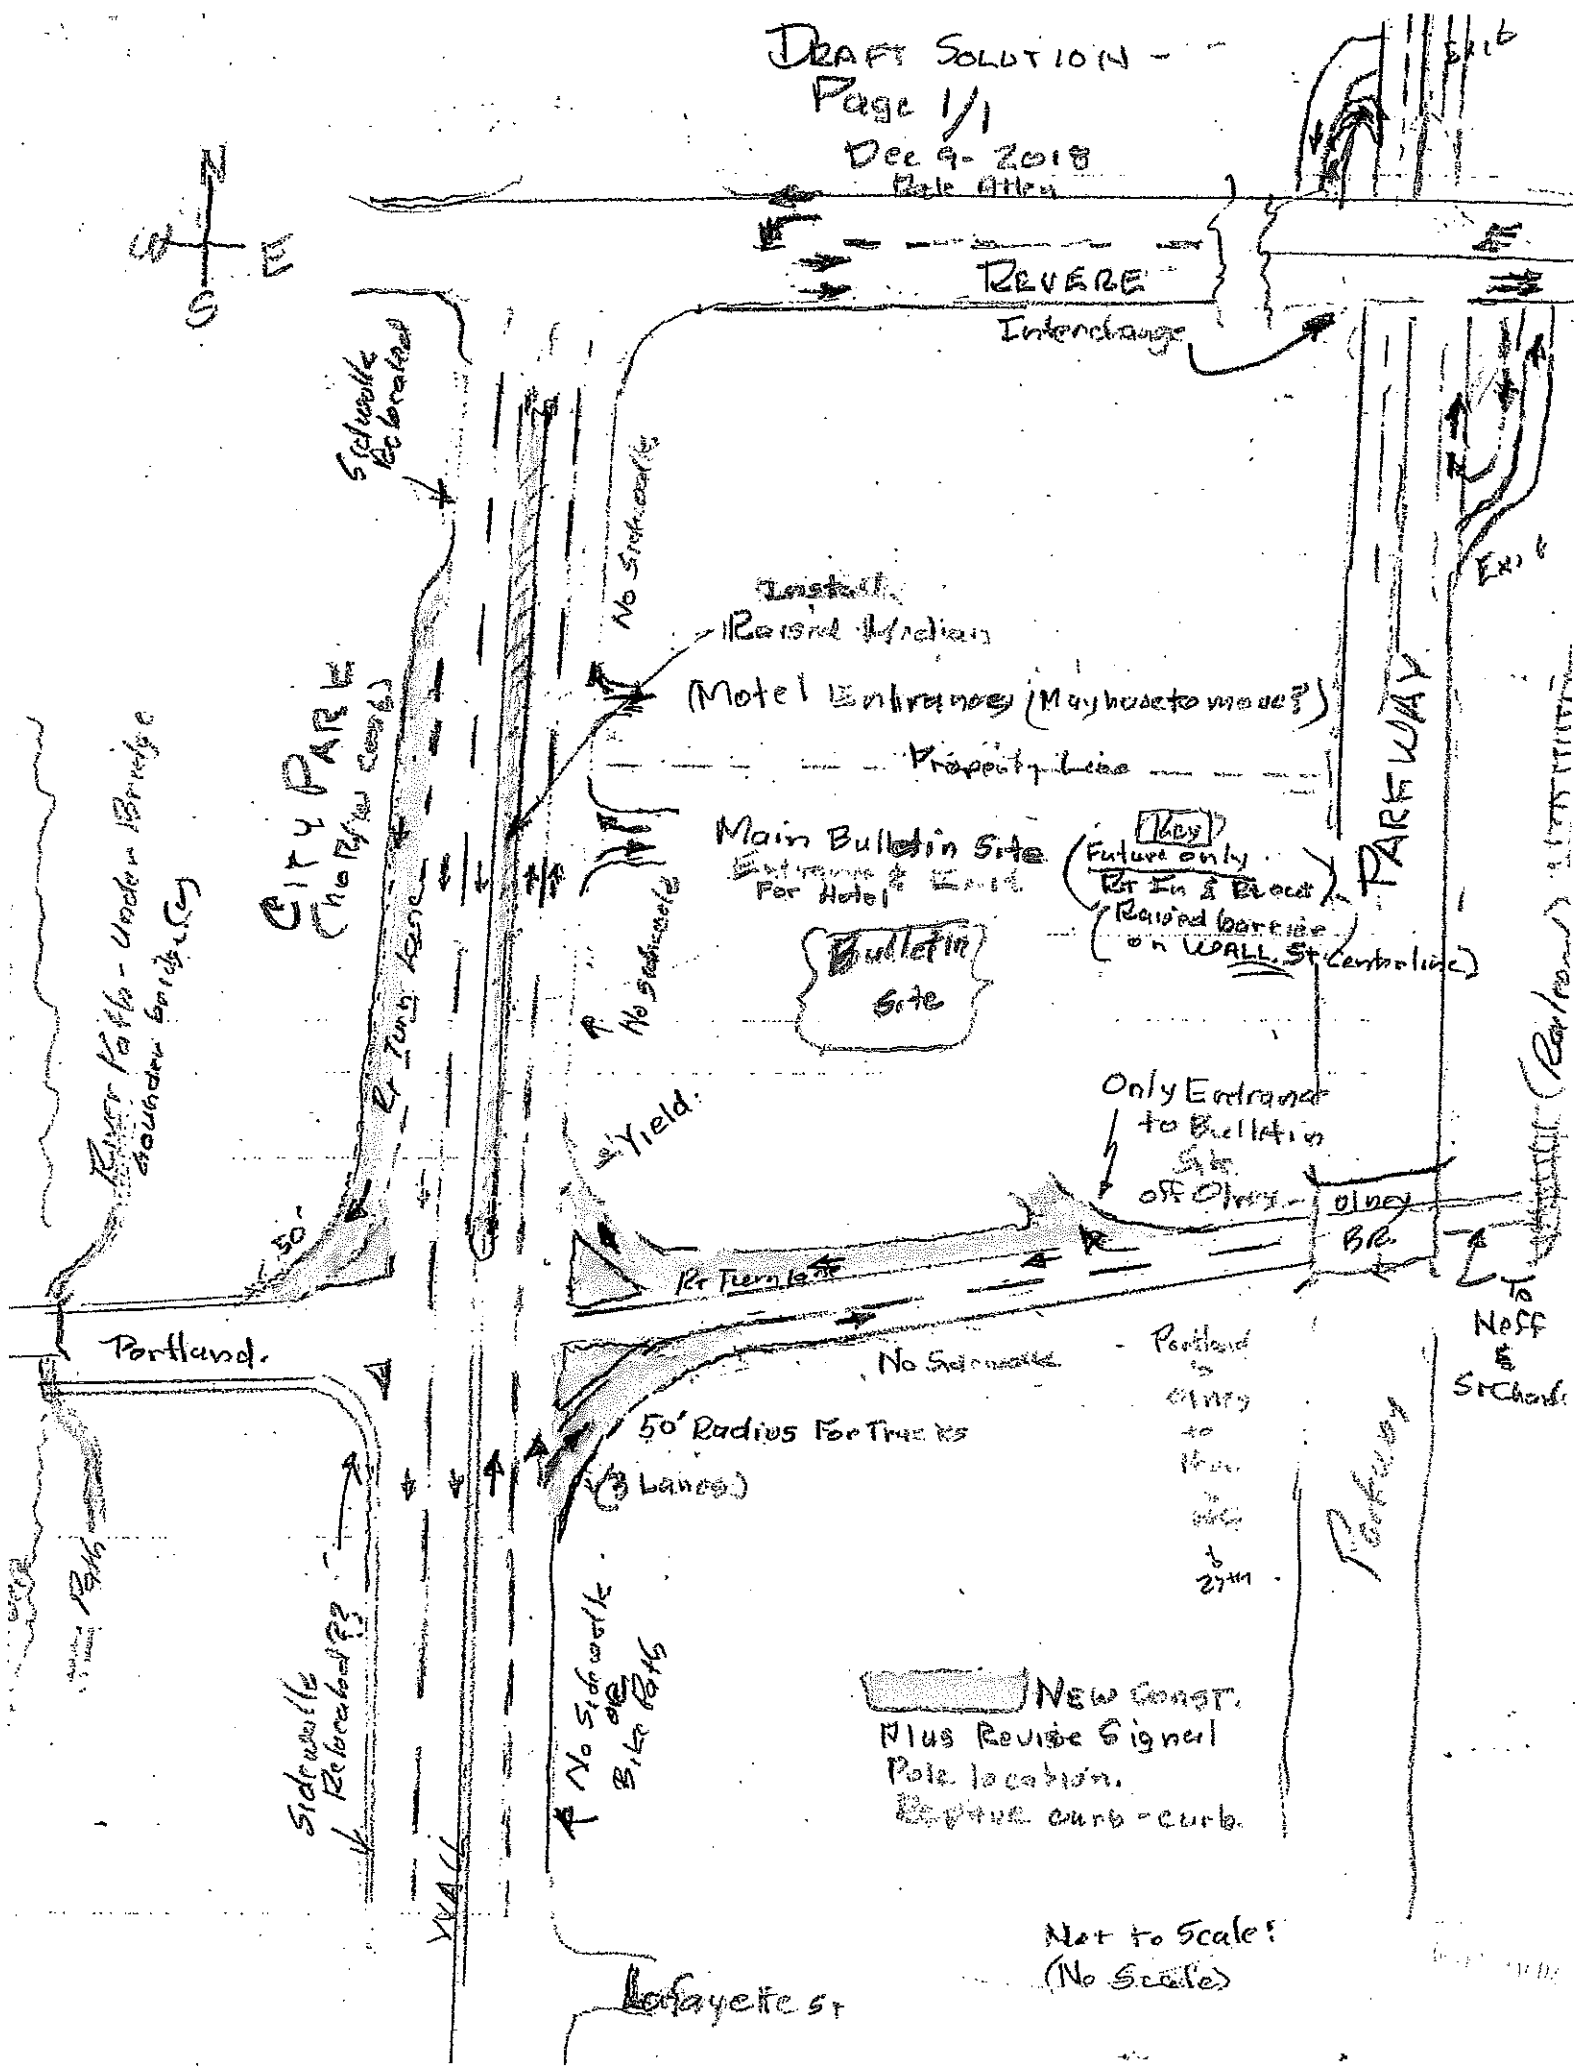 DRAFT SOLUTION -
Page 1/1
Dec 9 - 2018
Exit
N
W
E
S
REVERE
Interchange
Sidwalk
Relocated
No Sidwalk
Exit
Install
Raised Median
(Motel Entrance (May have to move?)
Property Line
CITY PARK
River Path - Under Bridge
PARKWAY
Main Bulletin Site
Entrance & Exit
For Hotel
Key
(Future only
Rt In & Rt out)
(Raised barrier
on WALL St Centerline)
Rt Turn Lane
No Sidewalk
Bulletin
Site
(Railroad)
Yield
Only Entrance
to Bulletin
Site
off Olney
Olney
BR.
50'
Rt Turn lane
To
Neff
&
St Charles
Portland.
No Sidewalk
Portland
to
Olney
to
to
27th
50' Radius For Trucks
(3 Lanes)
Parkway
Path
Sidewalk
Relocated??
No Sidewalk
or
Bike Path
NEW CONST.
Plus Revise Signal
Pole location.
curb - curb.
WALL
Not to Scale!
(No Scale)
Lafayette St